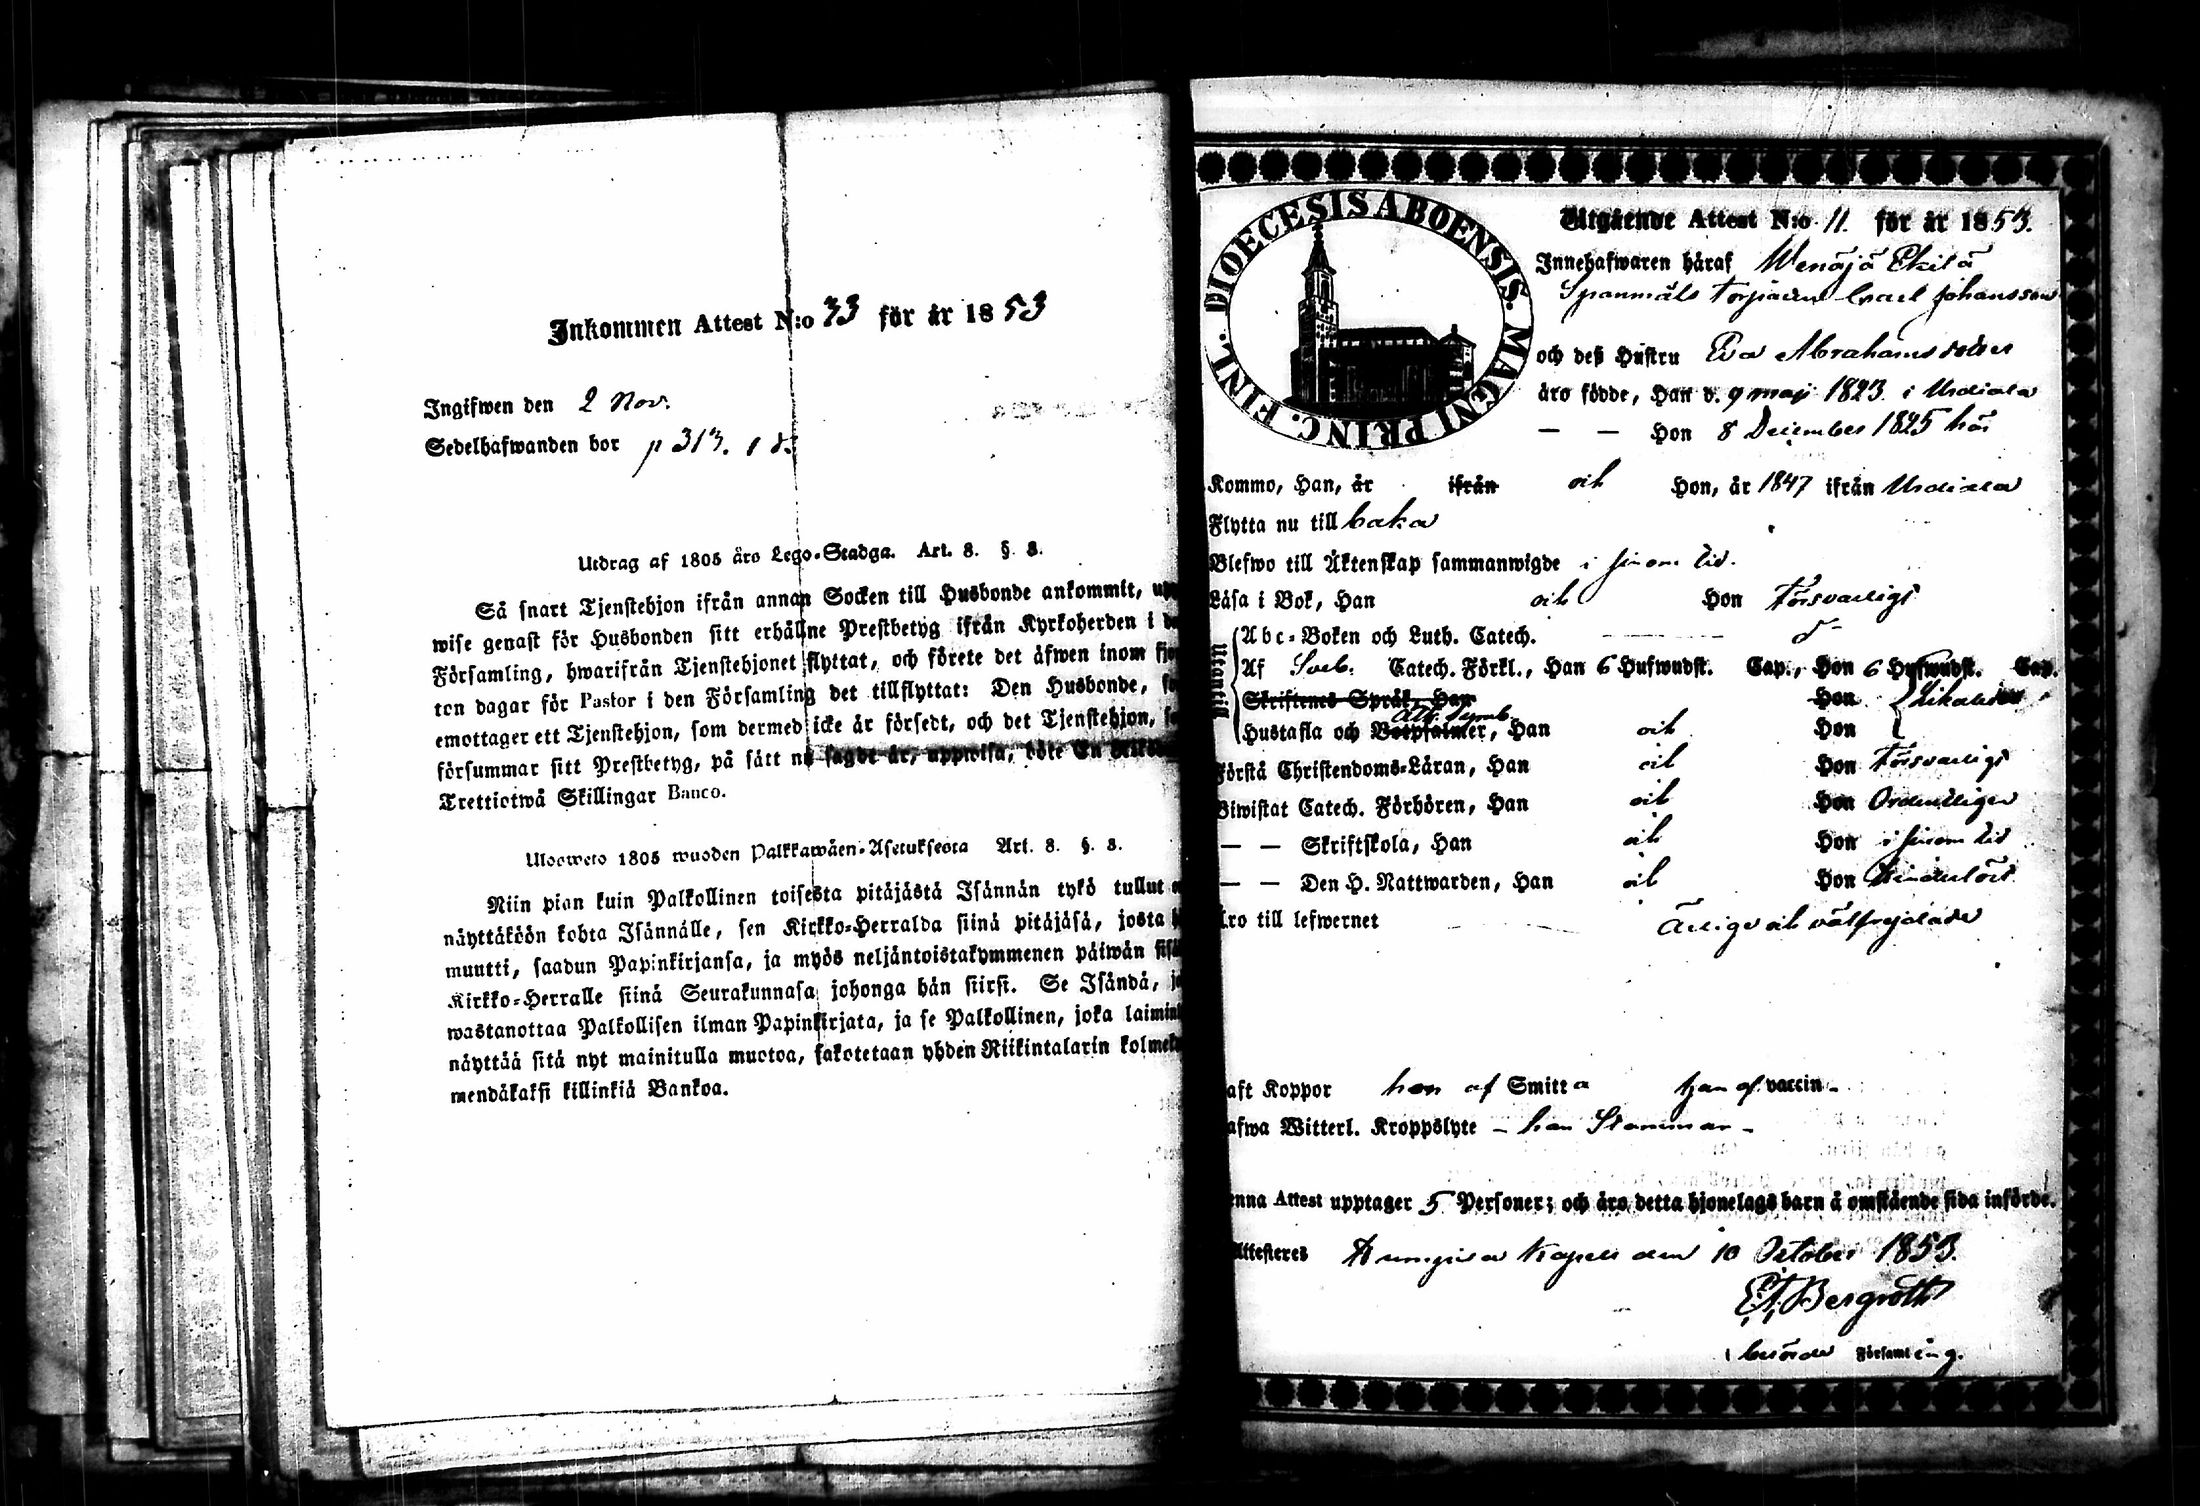 Inkommen Attest N:o 33 för år 1853
Ingifwen den 2 Nov.
Sedelhafwanden bor p 313.
Utdrag af 1805 års Lego-Stadga. Art. 8. §. 8.
Så snart Tjenstehjon ifrån annan Socken till Husbonde ankommit, upp
wise genast för Husbonden sitt erhållne Prestbetyg ifrån Kyrkoherden i de
Församling, hwarifrån Tjenstehjonet flyttat, och förete det äfwen inom fjor
ton dagar för Pastor i den Församling det tillflyttat: Den Husbonde, so
emottager ett Tjenstehjon, som dermed icke är försedt, och det Tjenstehjon, so
försummar sitt Prestbetyg, på sätt nu sagdt är, uppwisa, böte En Riksdal
Trettiotwå Skillingar Banco.
Ulosweto 1805 wuoden Palkkawäen-Asetuksesta Art. 8. §. 8.
Niin pian kuin Palkollinen toisesta pitäjästä Isännän tykö tullut o
näyttäköön kohta Isännälle, sen Kirkko-Herralda siinä pitäjäsä, josta h
muutti, saadun Papinkirjansa, ja myös neljäntoistakymmenen päiwän sisä
Kirkko-Herralle siinä Seurakunnasa johonga hän siirsi. Se Isändä, jo
wastanottaa Palkollisen ilman Papinkirjata, ja se Palkollinen, joka laimin
näyttää sitä nyt mainitulla muotoa, sakotetaan yhden Riikintalarin kolmeky
mendäkaksi killinkiä Bankoa.
DIOECESIS ABOENSIS. MAGNI PRINC. FINL.
Utgående Attest N:o 11. för år 1853.
Innehafwaren häraf Wenäjä Ekilä
Spanmåls Torparen Israel Johansson
och deß Hustru Eva Abrahamsdotter
äro födde, Han d. 9 maji 1823 i Urdiala
— — Hon 8 December 1825 här
Kommo, Han, år ifrån och Hon, år 1847 ifrån Urdiala
Flytta nu till
Blefwo till Äktenskap sammanwigde i sinom tid.
Läsa i Bok, Han och Hon Försvarligt
Utantid
Abc-Boken och Luth. Catech. d:o
Af Sveb. Catech. Förkl., Han 6 Hufwudst. Cap., Hon 6 Hufwudst. Cap.
Skriftenes Språk, Han Hon Likaledes
Ath. Symb.
Hustafla och Botpsalmer, Han och Hon
Förstå Christendoms-Läran, Han och Hon Försvarligt
Biwistat Catech. Förhören, Han och Hon Ordentligen
— — Skriftskola, Han och Hon i sinom tid
— — Den H. Nattwarden, Han och Hon hinderlöst
Äro till lefwernet Ärlige och välfrejdade
aft Koppor han af Smitta hon af vaccin
afwa Witterl. Kroppslyte – han Stammar –
enna Attest upptager 5 Personer; och äro detta hjonelags barn å omstående sida införde.
Attesteres Kumgiva Kapell den 10 October 1853.
Bergroth
i berörde Församling.